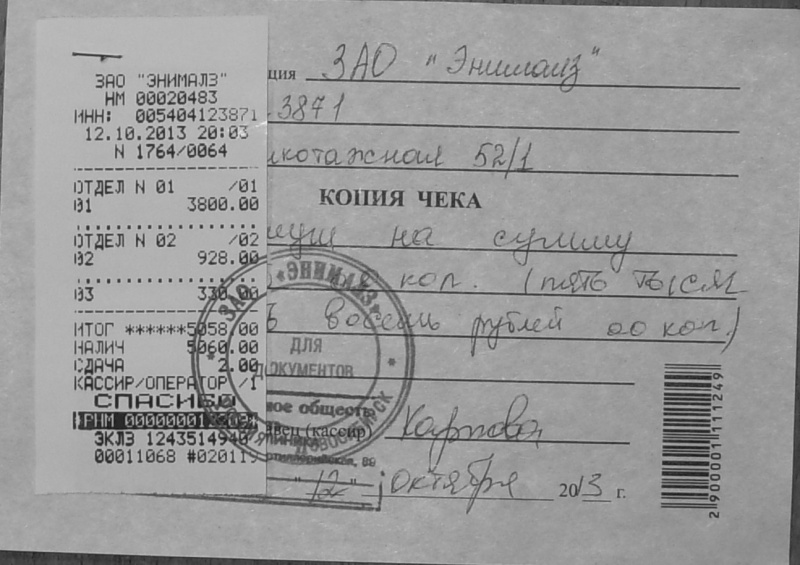 ЗАО "ЭНИМАЛЗ"
НМ 00020483
ИНН: 005404123871
12.10.2013 20:03
N 1764/0064
ОТДЕЛ N 01 /01
01 3800.00
ОТДЕЛ N 02 /02
02 928.00
03 330.00
ИТОГ ******5058.00
НАЛИЧ 5060.00
СДАЧА 2.00
КАССИР/ОПЕРАТОР /1
СПАСИБО
ЭКЛЗ 1243514940
00011068 #020119
ция ЗАО "Энималз"
3871
икотажная 52/1
КОПИЯ ЧЕКА
на сумму
коп. (пять тысяч
восемь рублей 00 коп.)
ЗАО "ЭНИМАЛЗ"
ДЛЯ
ДОКУМЕНТОВ
НОВОСИБИРСК
ное общест
вец (кассир) Карпова
"12" октября 2013 г.
2 900001 111249